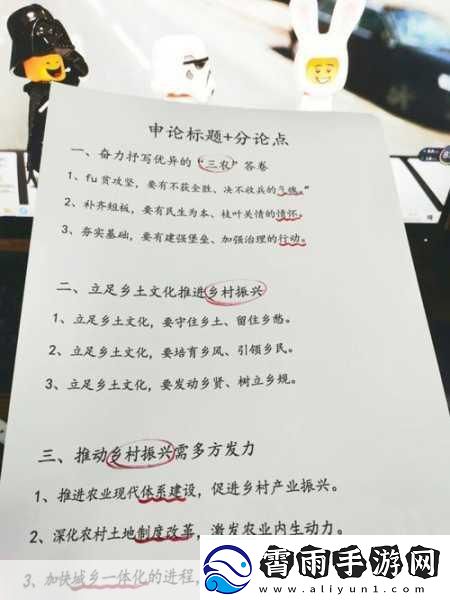 申论标题+分论点
一、奋力抒写优异的“三农”答卷
1、fu贫攻坚，要有不获全胜、决不收兵的气魄。”
2、补齐短板，要有民生为本、枝叶关情的情怀。
3、夯实基础，要有建强堡垒、加强治理的行动。
二、立足乡土文化推进乡村振兴
1、立足乡土文化，要守住乡土、留住乡愁。
2、立足乡土文化，要培育乡风、引领乡民。
3、立足乡土文化，要发动乡贤、树立乡规。
三、推动乡村振兴需多方发力
1、推进农业现代体系建设，促进乡村产业振兴。
2、深化农村土地制度改革，激发农业内生动力。
3、加快城乡一体化的进程，
霄雨手游网
www.aliyun1.com